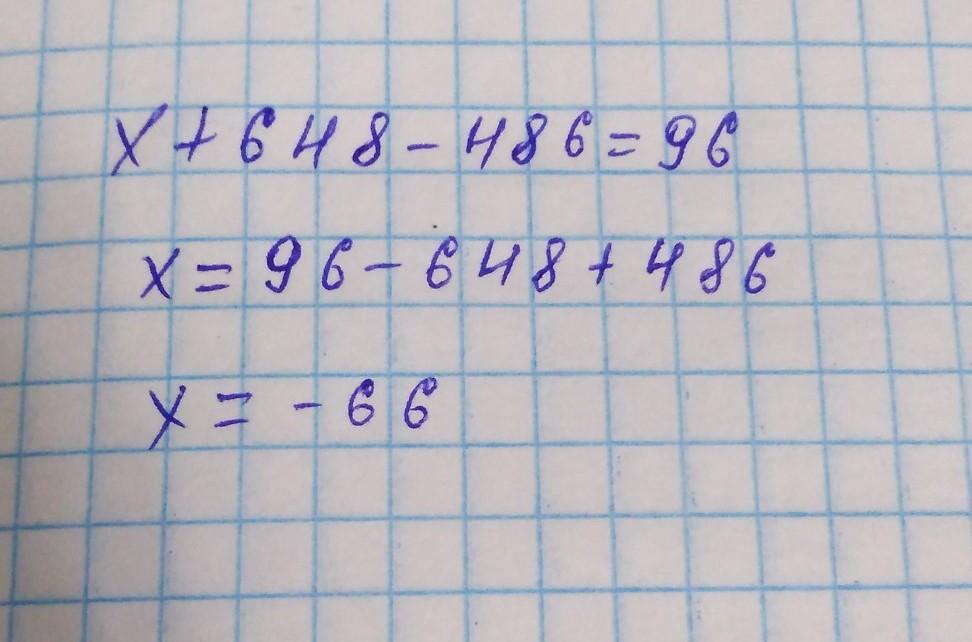 x+648-486=96
x=96-648+486
x=-66